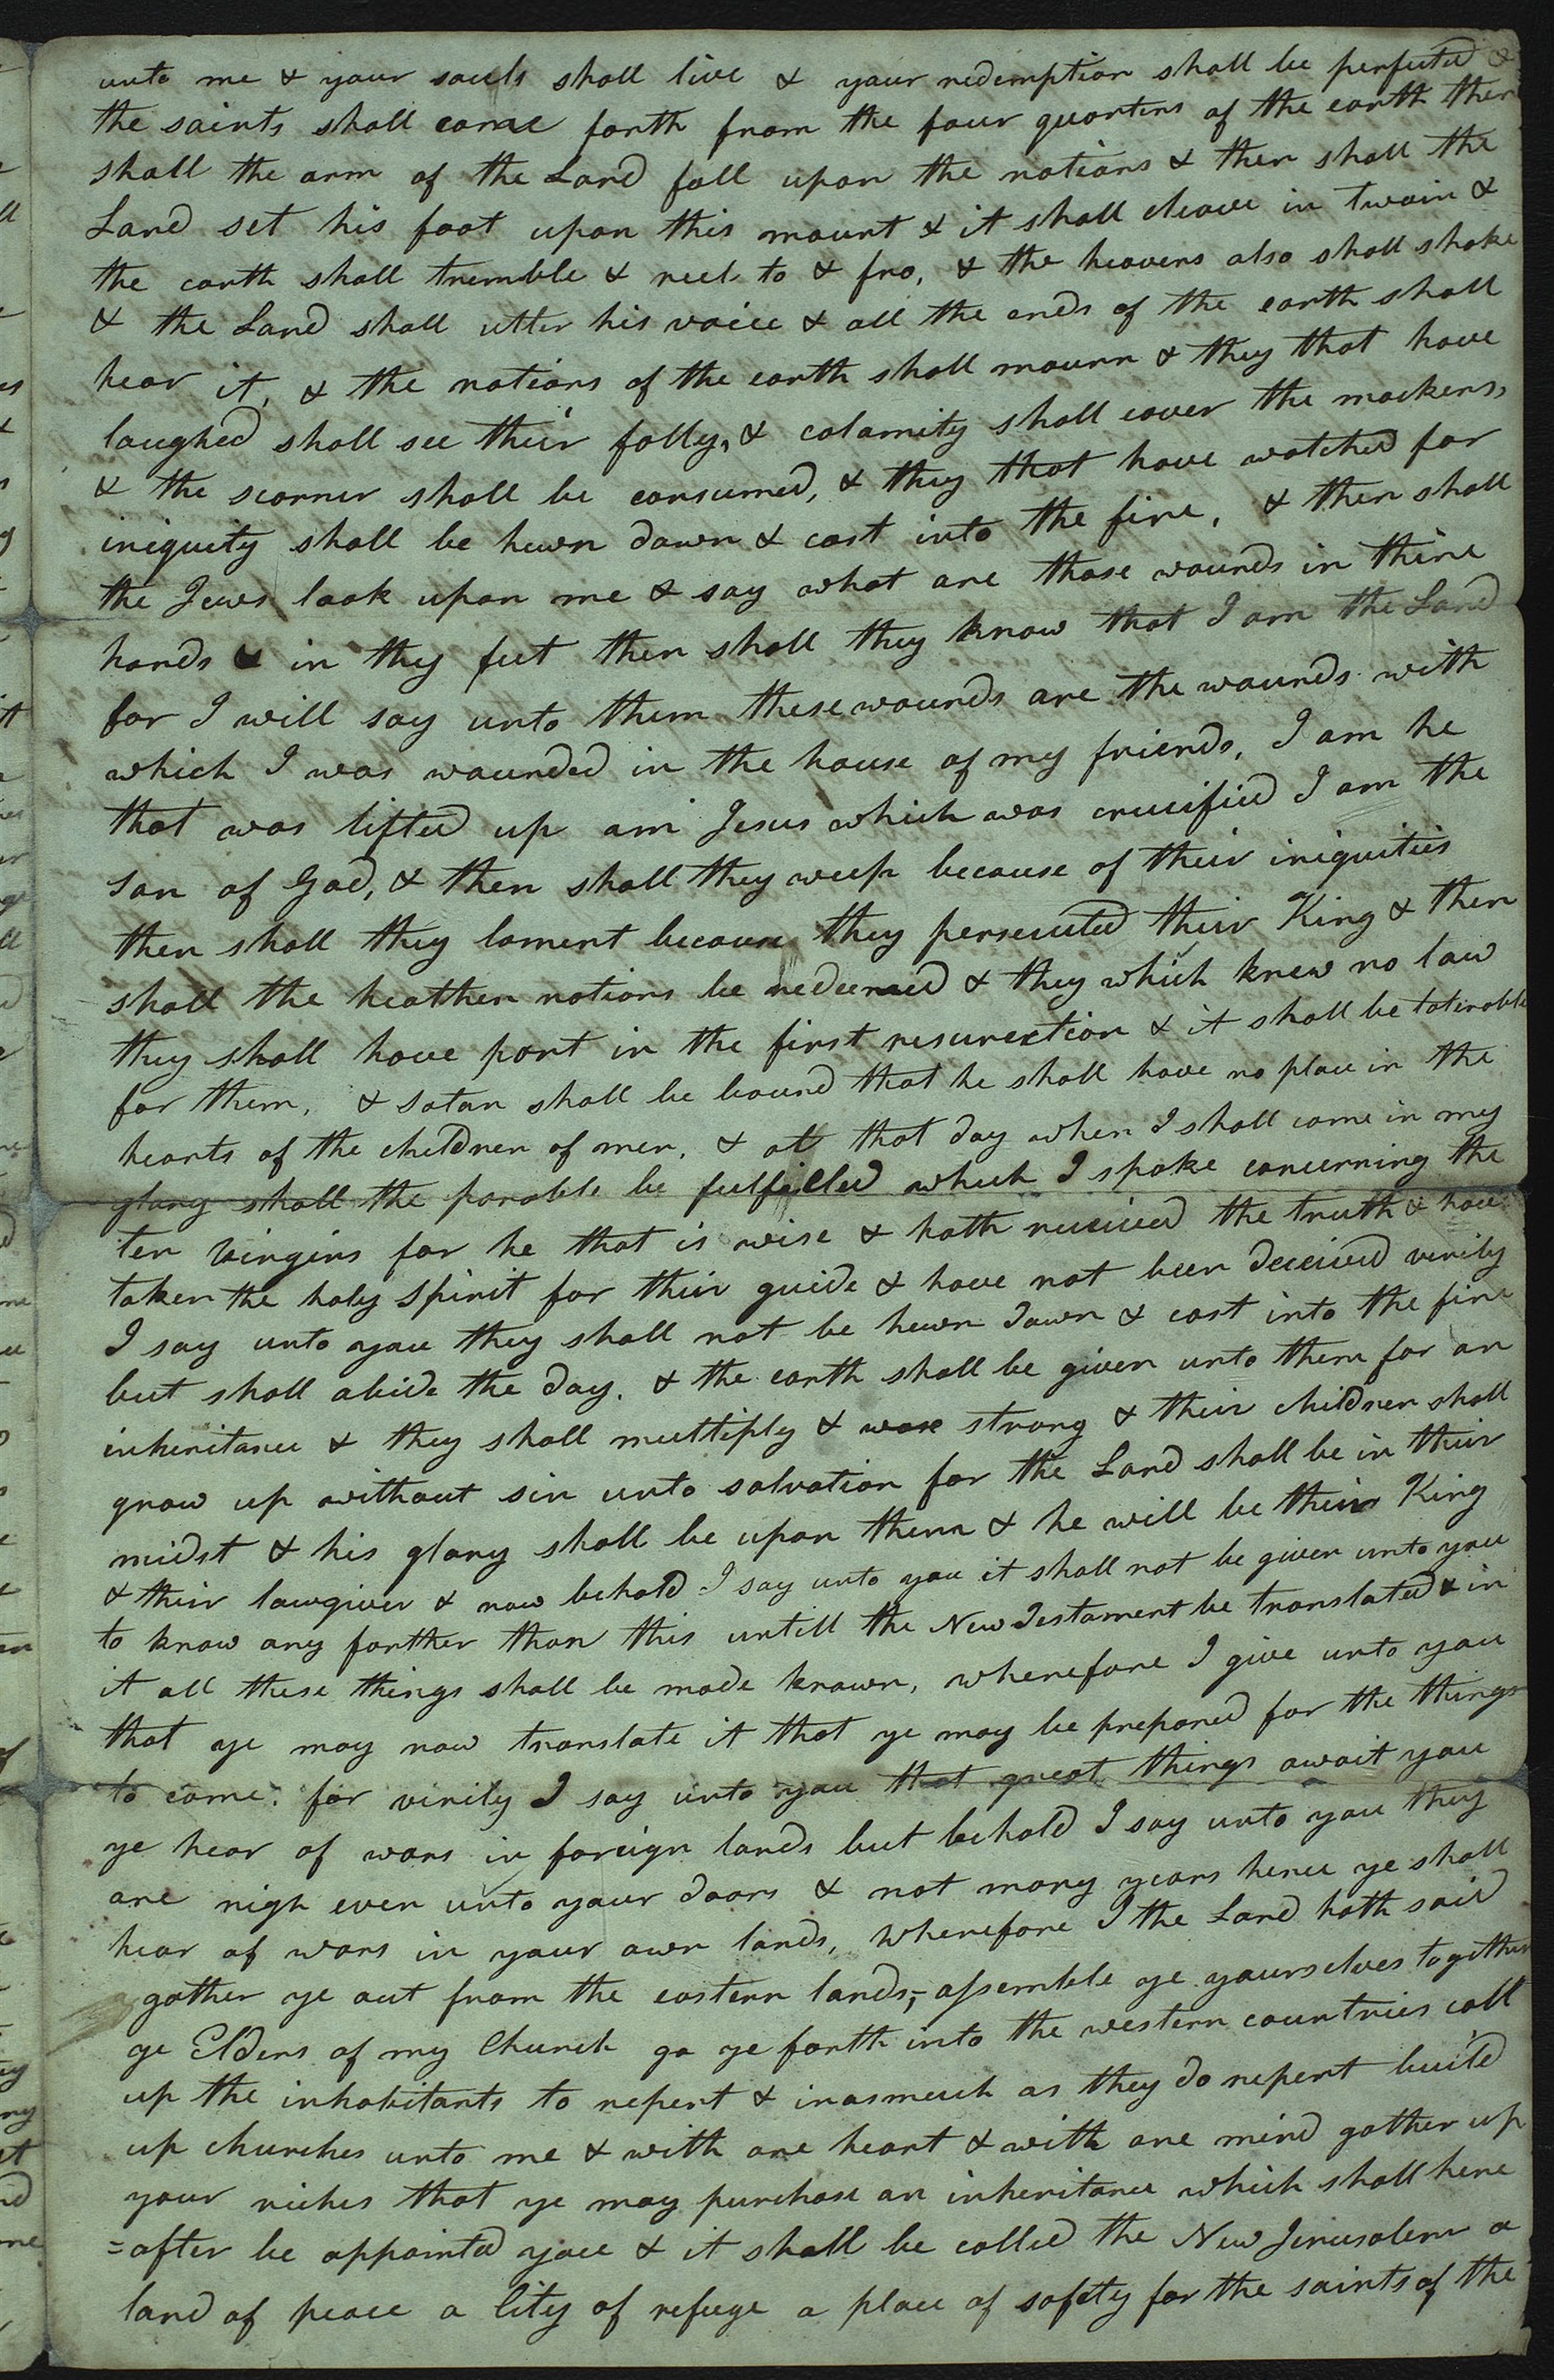 unto me & your souls shall live & your redemption shall be perfected &
the saints shall come forth from the four quarters of the earth then
shall the arm of the Lord fall upon the nations & then shall the
Lord set his foot upon this mount & it shall cleave in twain &
the earth shall tremble & reel to & fro, & the heavens also shall shake
& the Lord shall utter his voice & all the ends of the earth shall
hear it, & the nations of the earth shall mourn & they that have
laughed shall see their folly, & calamity shall cover the mockers,
& the scorner shall be consumed, & they that have watched for
iniquity shall be hewn down & cast into the fire, & then shall
the Jews look upon me & say what are those wounds in thine
hands & in thy feet then shall they know that I am the Lord
for I will say unto them these wounds are the wounds with
which I was wounded in the house of my friends, I am he
that was lifted up am Jesus which was crucified I am the
son of God, & then shall they weep because of their iniquities
then shall they lament because they persecuted their King & then
shall the heathen nations be redeemed & they which knew no law
they shall have part in the first resurection & it shall be tolerable
for them, & satan shall be bound that he shall have no place in the
hearts of the children of men, & at that day when I shall come in my
glory shall the parable be fulfilled which I spake concerning the
ten virgins for he that is wise & hath received the truth & have
taken the holy spirit for their guide & have not been deceived verily
I say unto you they shall not be hewn down & cast into the fire
but shall abide the day. & the earth shall be given unto them for an
inheritance & they shall multiply & wax strong & their children shall
grow up without sin unto salvation for the Lord shall be in their
midst & his glory shall be upon them & he will be their King
& their lawgiver & now behold I say unto you it shall not be given unto you
to know any farther than this untill the New Testament be translated & in
it all these things shall be made known, wherefore I give unto you
that ye may now translate it that ye may be prepared for the things
to come. for verily I say unto you that great things await you
ye hear of wars in foreign lands but behold I say unto you they
are nigh even unto your doors & not many years hence ye shall
hear of wars in your own lands, wherefore I the Lord hath said
gather ye out from the eastern lands, assemble ye yourselves together
ye Elders of my Church go ye forth into the western countries call
up the inhabitants to repent & inasmuch as they do repent build
up churches unto me & with one heart & with one mind gather up
your riches that ye may purchase an inheritance which shall here
=after be appointed you & it shall be called the New Jerusalem a
land of peace a City of refuge a place of safety for the saints of the